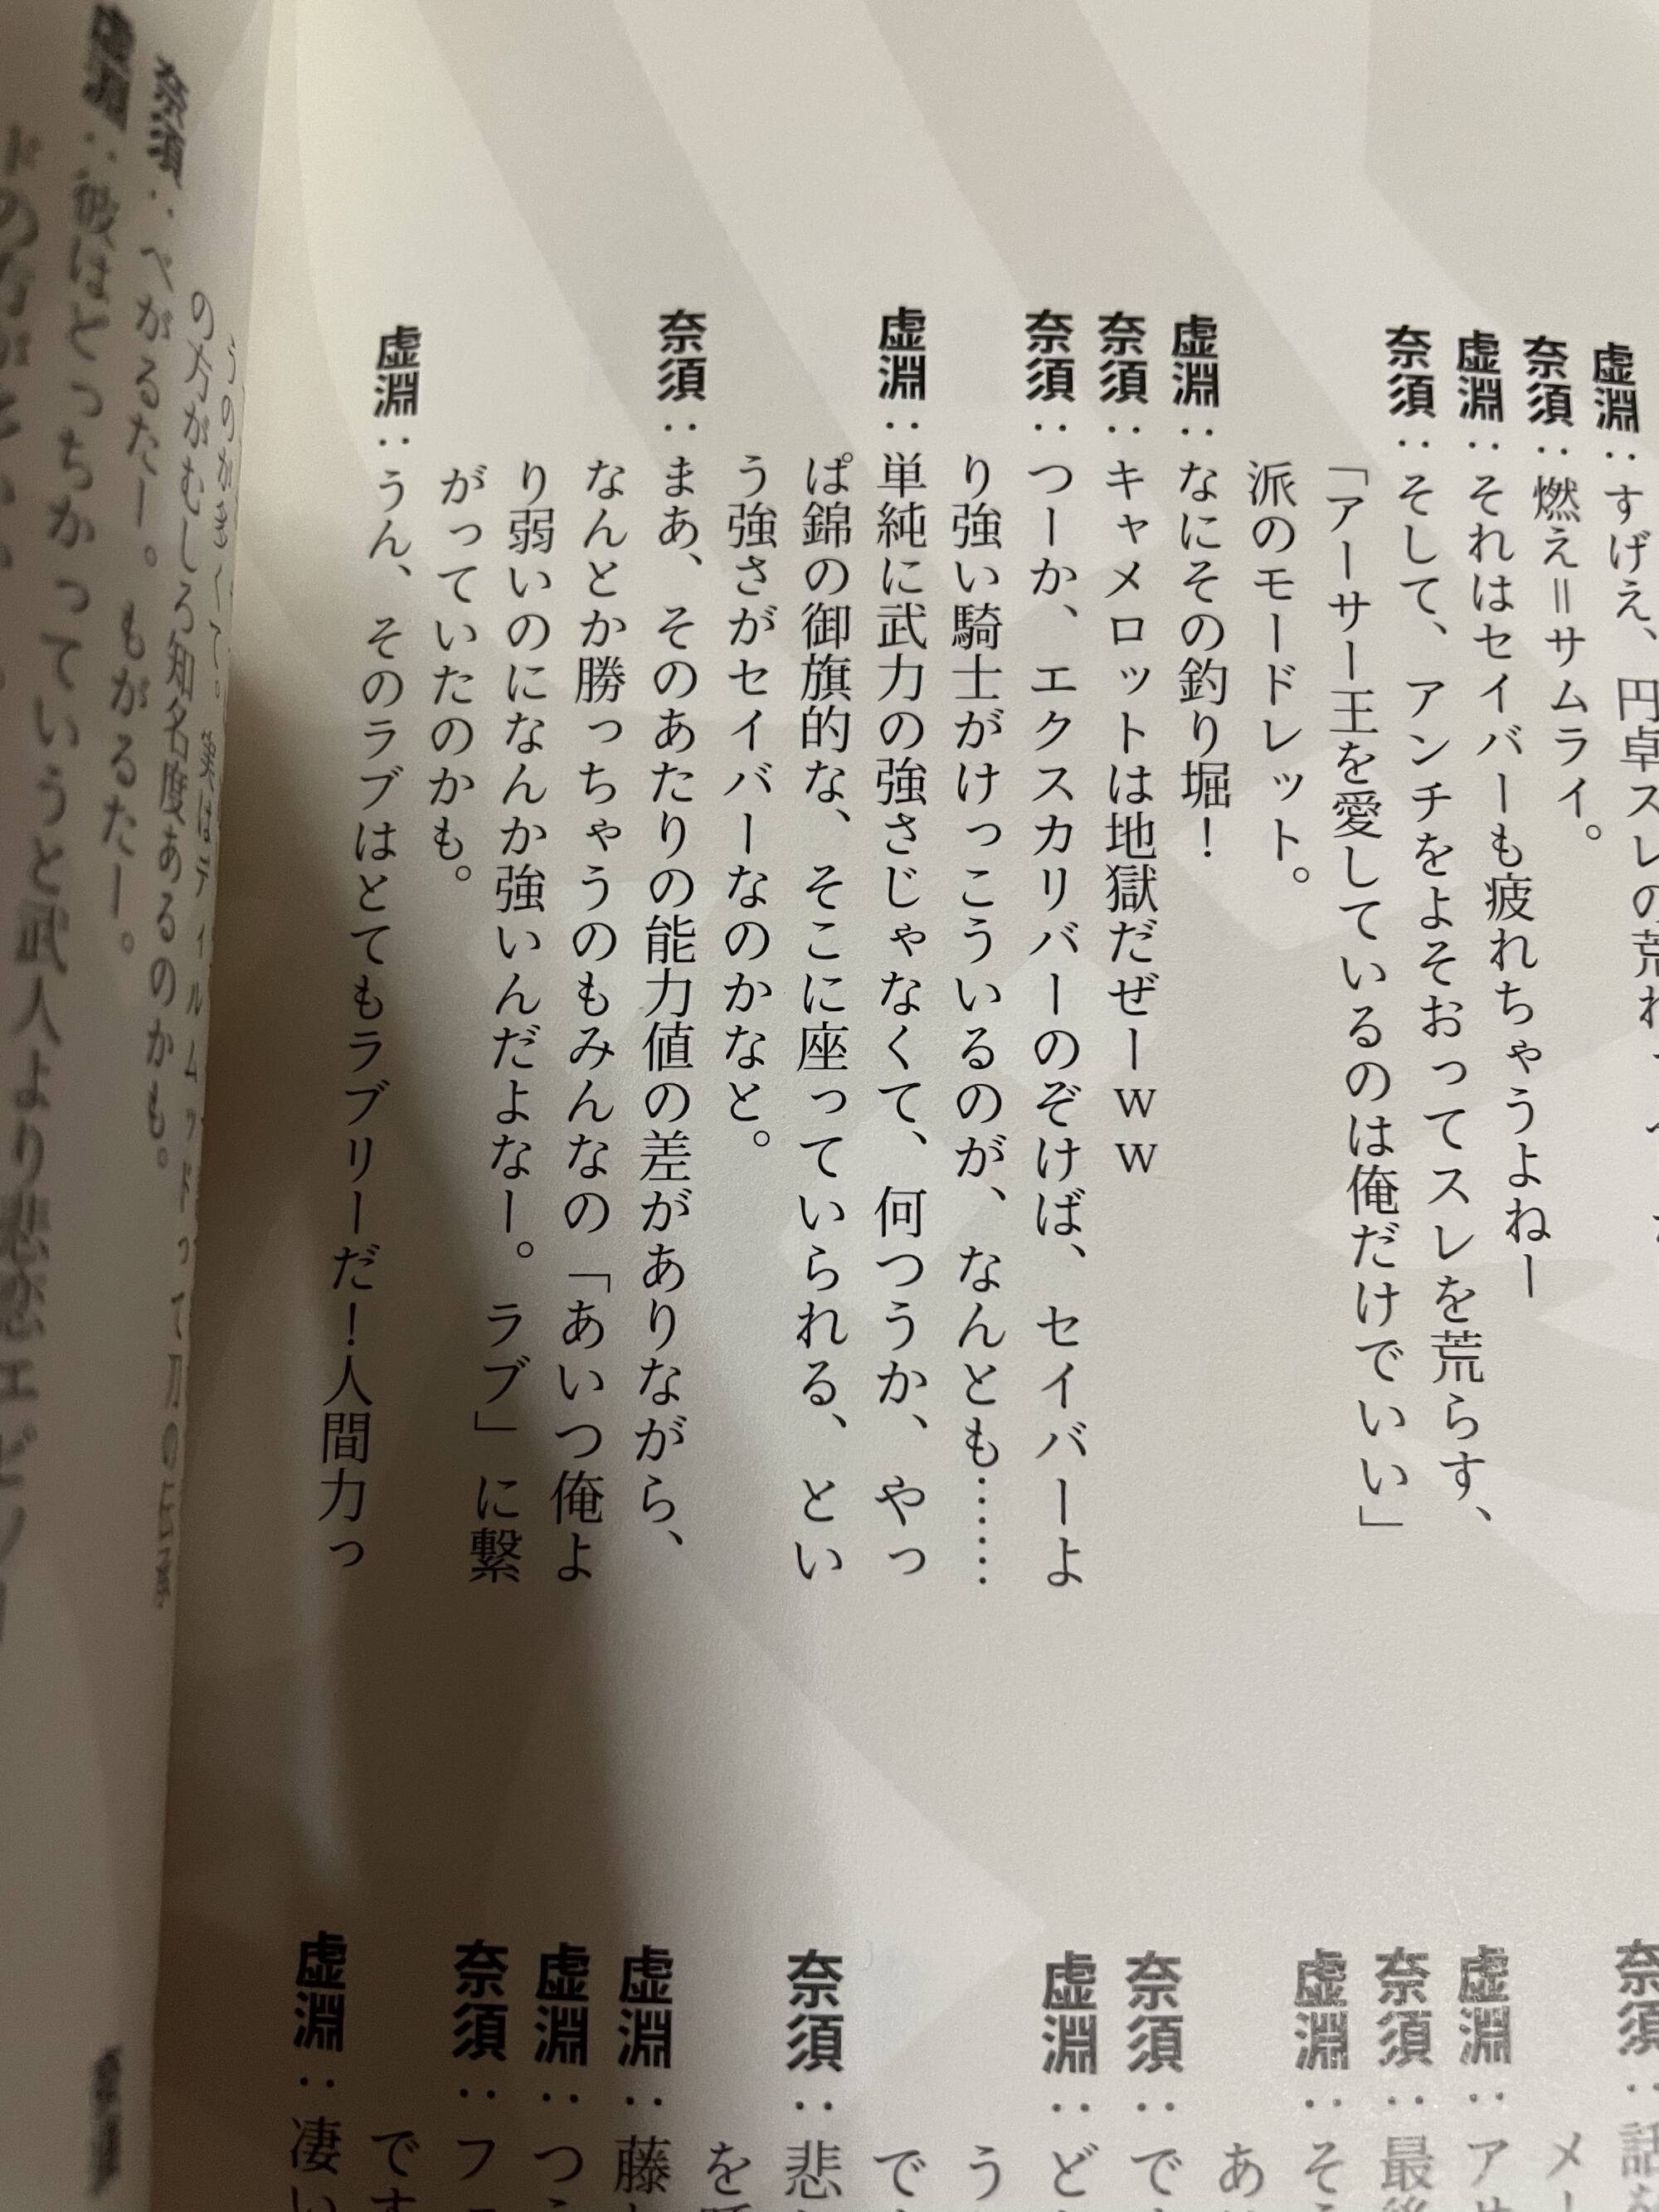 虚淵：すげえ、円卓スレの荒れ
奈須：燃え＝サムライ。
虚淵：それはセイバーも疲れちゃうよねー
奈須：そして、アンチをよそおってスレを荒らす、
「アーサー王を愛しているのは俺だけでいい」
派のモードレット。
虚淵：なにその釣り堀！
奈須：キャメロットは地獄だぜーｗｗ
奈須：つーか、エクスカリバーのぞけば、セイバーよ
り強い騎士がけっこういるのが、なんとも……
虚淵：単純に武力の強さじゃなくて、何つうか、やっ
ぱ錦の御旗的な、そこに座っていられる、とい
う強さがセイバーなのかなと。
奈須：まあ、そのあたりの能力値の差がありながら、
なんとか勝っちゃうのもみんなの「あいつ俺よ
り弱いのになんか強いんだよなー。ラブ」に繋
がっていたのかも。
虚淵：うん、そのラブはとてもラブリーだ！人間力っ
奈須：話
メ
虚淵：ア
奈須：最
虚淵：そ
あ
奈須：で
虚淵：ど
う
で
奈須：悲
を
虚淵：藤
虚淵：つ
奈須：フ
です
虚淵：凄い
の方がむしろ知名度あるのかも。
奈須：ぺがるたー。もがるたー。
虚淵：彼はどっちかっていうと武人より悲恋エピソ